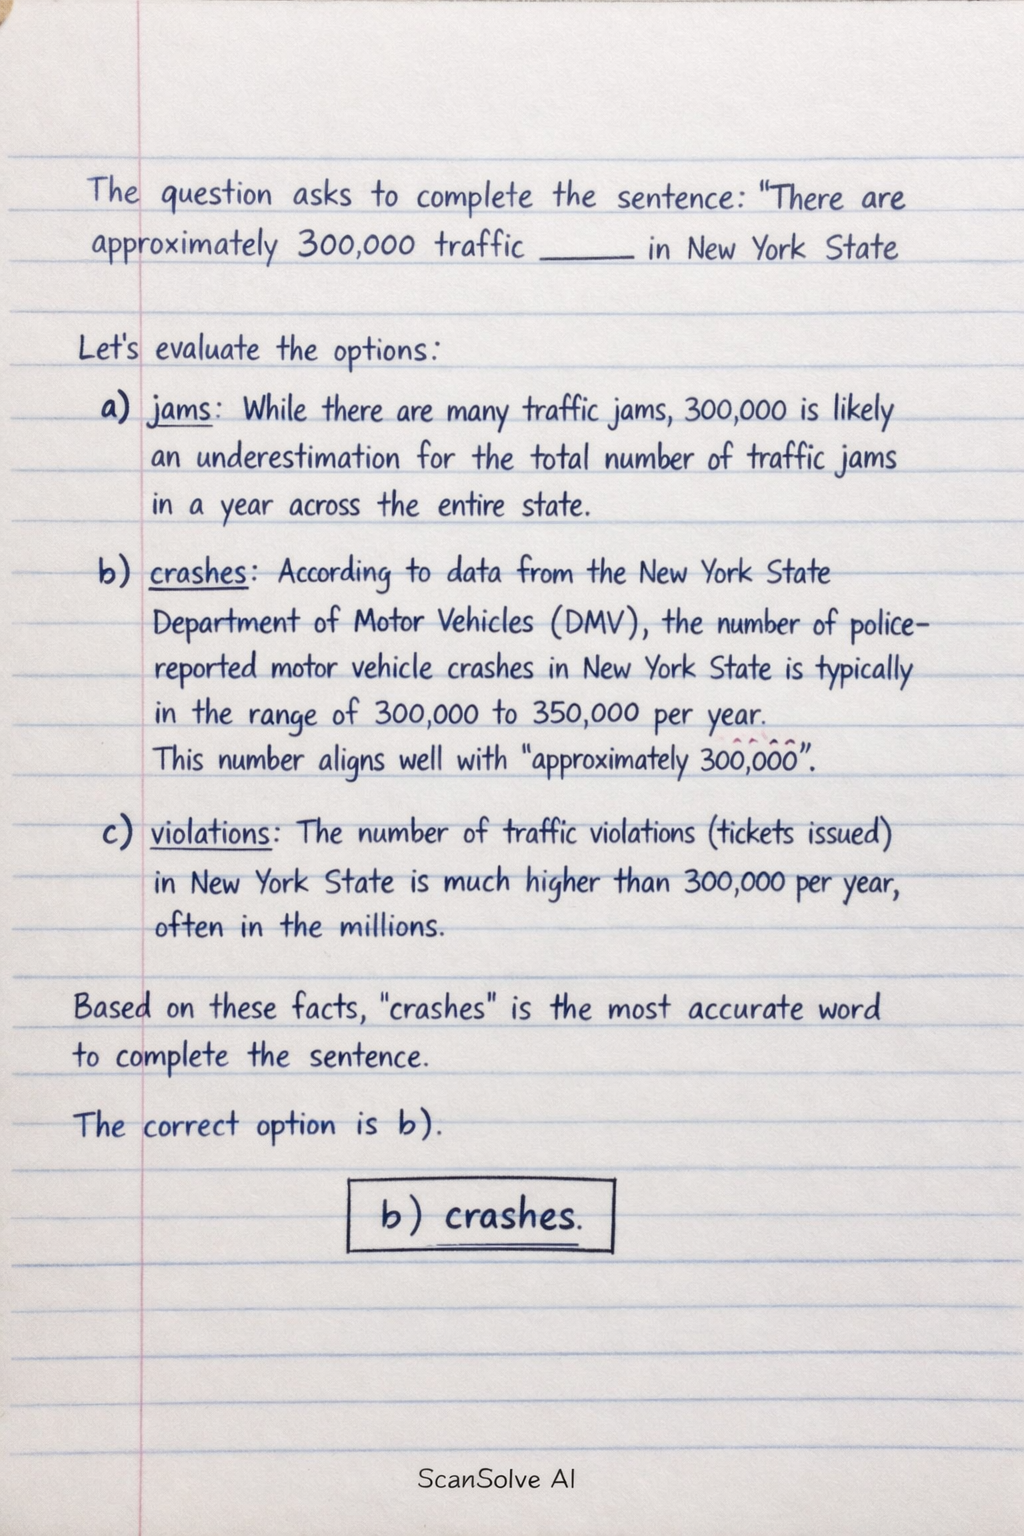 The question asks to complete the sentence: "There are
approximately 300,000 traffic _____ in New York State
Let's evaluate the options:
a) jams: While there are many traffic jams, 300,000 is likely
an underestimation for the total number of traffic jams
in a year across the entire state.
b) crashes: According to data from the New York State
Department of Motor Vehicles (DMV), the number of police-
reported motor vehicle crashes in New York State is typically
in the range of 300,000 to 350,000 per year.
This number aligns well with "approximately 300,000".
c) violations: The number of traffic violations (tickets issued)
in New York State is much higher than 300,000 per year,
often in the millions.
Based on these facts, "crashes" is the most accurate word
to complete the sentence.
The correct option is b).
b) crashes.
ScanSolve AI